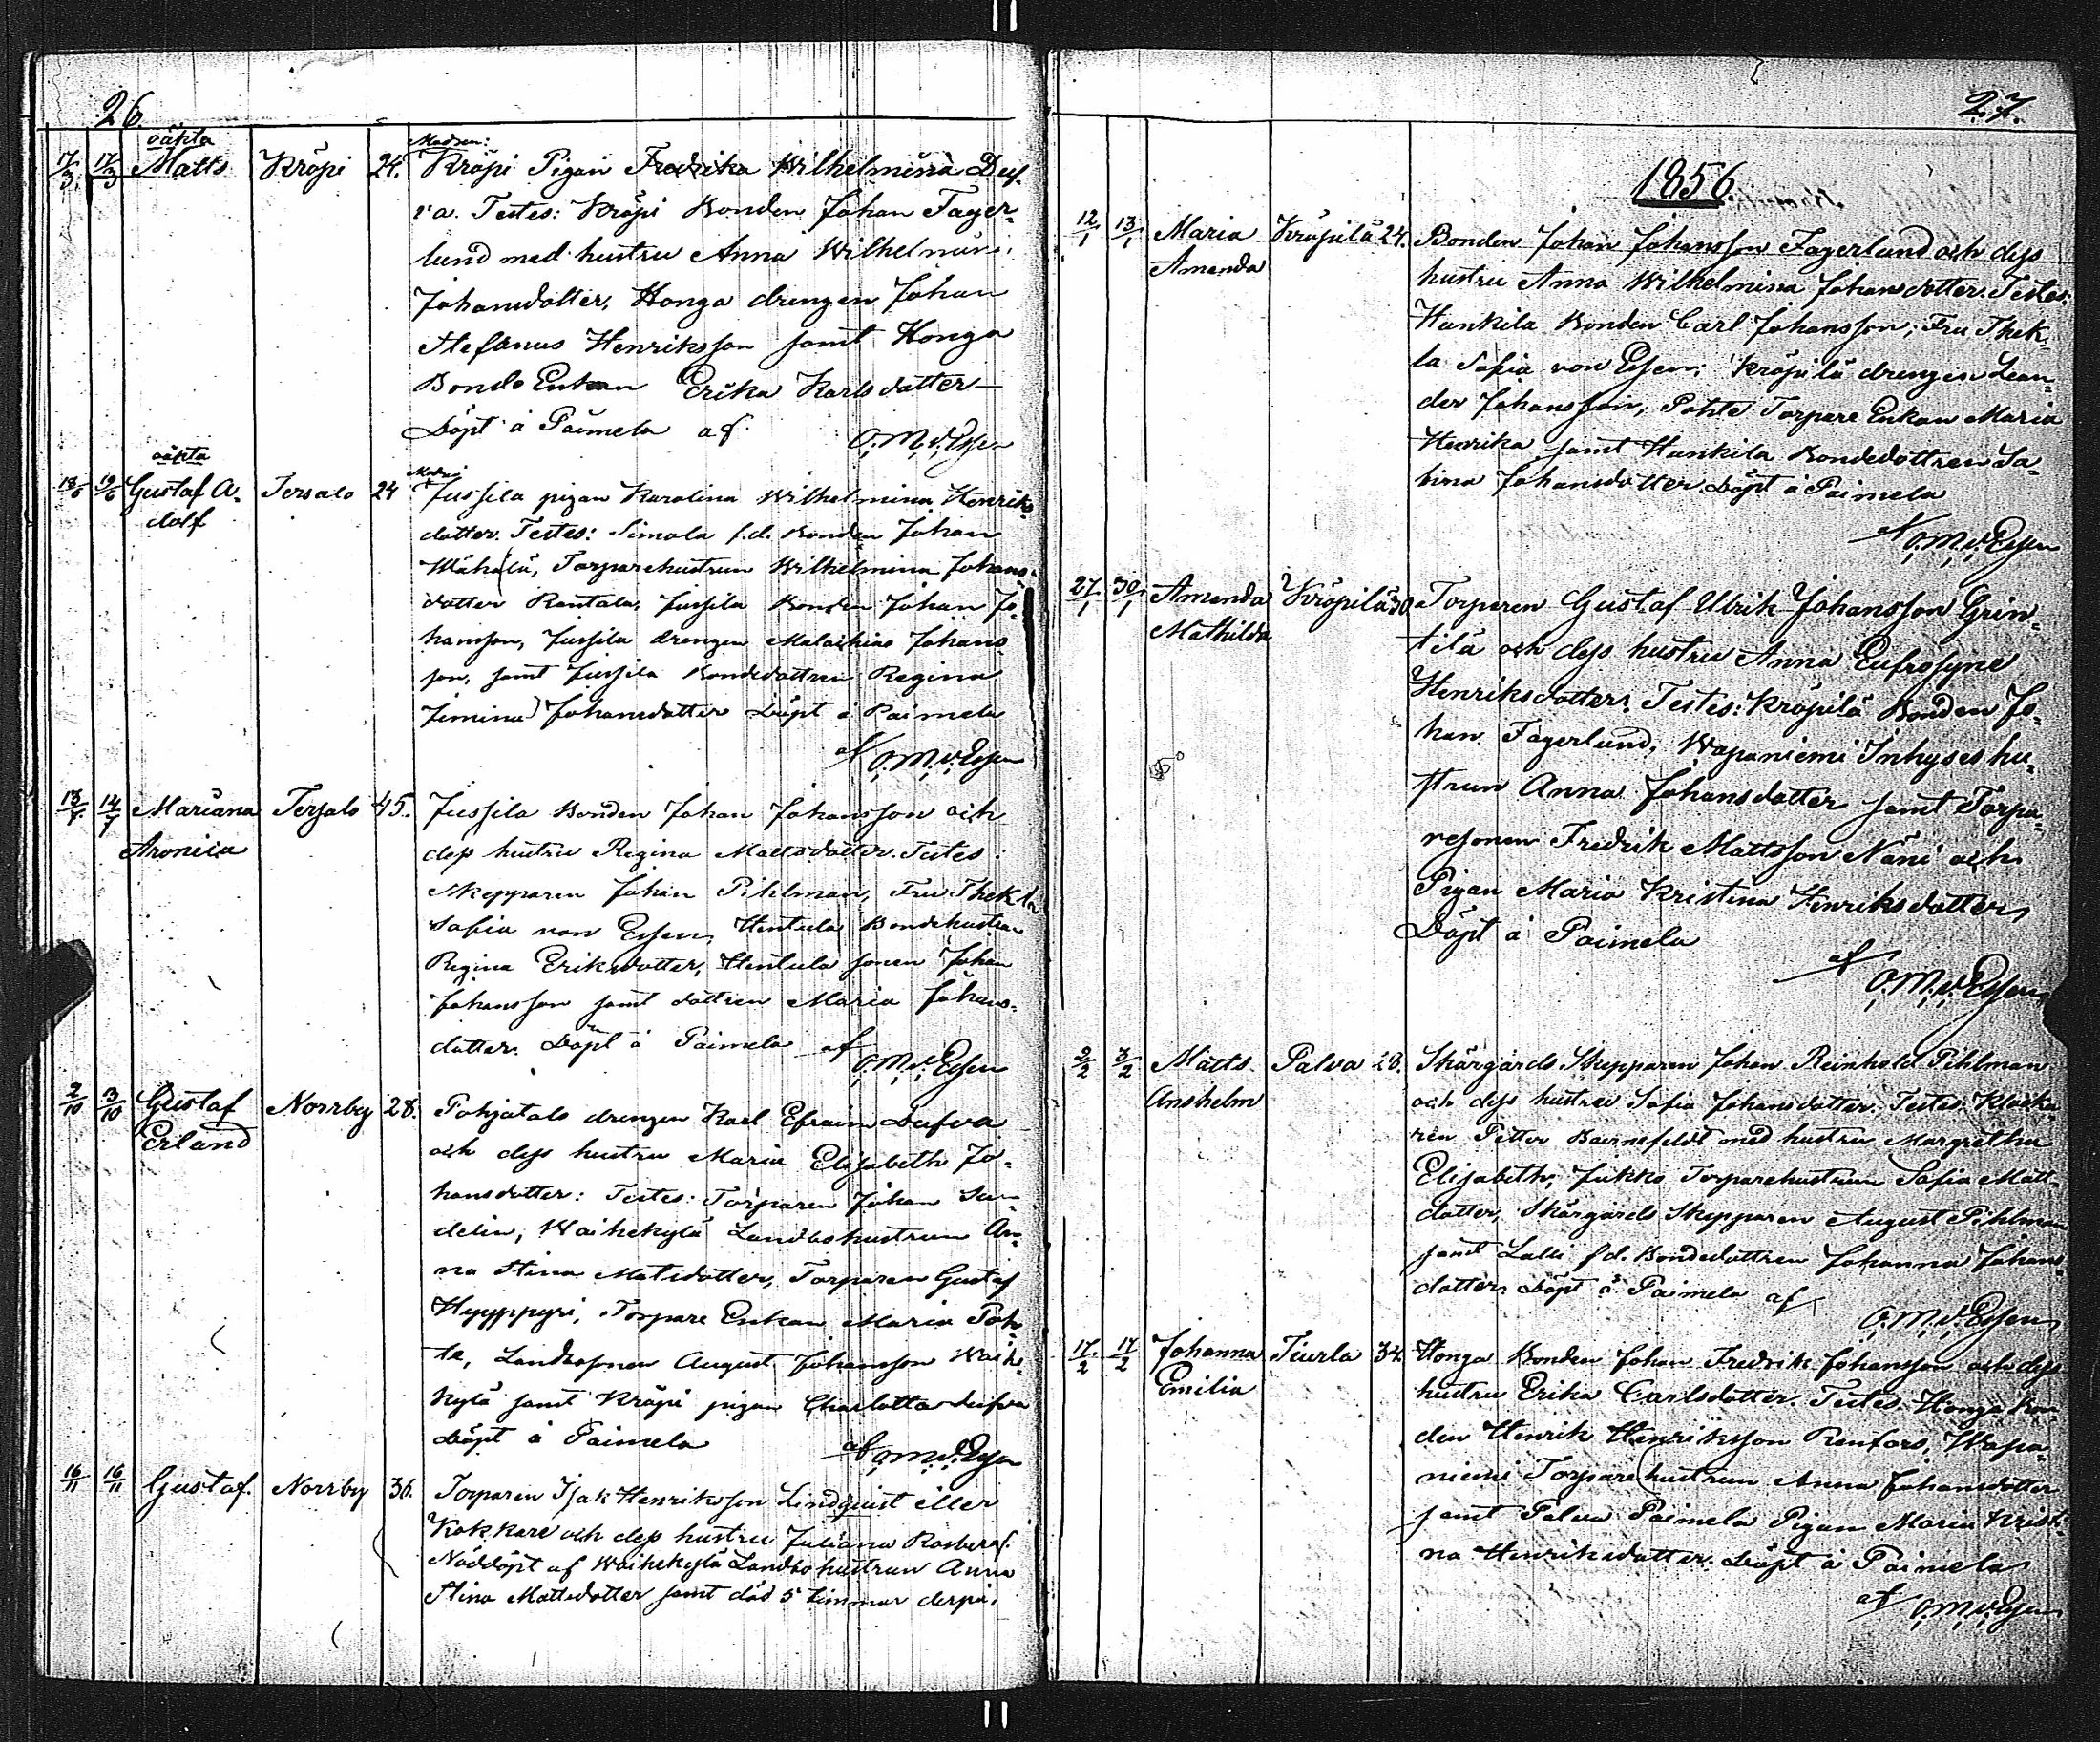 26.
oäkta
17/3 17/3 Matts Kröpi 24. Modren: Kröpi Pigan Fredrika Wilhelmina Duf-
va. Testes: Kröpi Bonden Johan Fager-
lund med hustru Anna Wilhelmina
Johansdotter, Honga drengen Johan
Stefanus Henriksson samt Honga
Bonde Enkan Erika Karlsdotter
Döpt å Paimela af O.M.v.Essen
oäkta
18/6 19/6 Gustaf A- Tersalo 24 Jussila pigan Karolina Wilhelmina Henriks-
dolf dotter. Testes: Simola f.d. Bonden Johan
Torparehustrun Wilhelmina Johans-
dotter Rantala, Jussila Bonden Johan Jo-
hansson, Jussila drengen Malachias Johans-
son, samt Jussila Bondedottren Regina
Johansdotter Döpt å Paimela
af O.M.v.Essen
Mariana Tersalo 45. Jussila Bonden Johan Johansson och
Aronica dess hustru Regina Mattsdotter. Testes:
Skepparen Johan Pihlman, Fru Thekla
Sofia von Essen, Hentula Bondehustrun
Regina Eriksdotter, Hentula sonen Johan
Johansson samt dottren Maria Johans-
dotter. Döpt å Paimela af O.M.v.Essen
2/10 3/10 Gustaf Norrby 28. Pohjatalo drengen Karl Efraim Dufva
Erland och dess hustru Maria Elisabeth Jo-
hansdotter: Testes: Torparen Johan Sun-
delin, Waihekylä Landbohustrun An-
na Stina Matsdotter, Torparen Gustaf
Hyypppyri, Torpare Enkan Maria Poh-
te, Landbosonen August Johansson Waihe-
kylä samt Kröpi pigan Charlotta Dufva
Döpt å Paimela af O.M.v.Essen
16/11 16/11 Gustaf. Norrby 36. Torparen Isak Henriksson Lindquist eller
Kokkare och dess hustru Juliana Rosberg.
Nöddöpt af Waihekylä Landbohustrun Anna
Stina Mattsdotter samt död 5 timmar derpå.
27.
1856.
12/1 13/1 Maria Kröpilä 24. Bonden Johan Johansson Fagerlund och dess
Amanda hustru Anna Wilhelmina Johansdotter. Testes:
Hankila Bonden Carl Johansson, Fru Thek-
la Sofia von Essen; Kröpilä drengen Lean-
der Johansson, Pohte Torpare Enkan Maria
Henrika samt Hankila Bondedottren Sa-
bina Johansdotter. Döpt å Paimela
af O.M.v.Essen
27/1 30/1 Amanda Kröpilä 30. Torparen Gustaf Ulrik Johansson Grin-
Mathilda tilä och dess hustru Anna Eufrosyne
Henriksdotter. Testes: Kröpilä Bonden Jo-
han Fagerlund, Wapaniemi Inhyses hu-
strun Anna Johansdotter samt Torpa-
resonen Fredrik Mattsson Näni och
Pigan Maria Kristina Henriksdotter
Döpt å Paimela
af O.M.v.Essen
2/2 3/2 Matts Palva 28. Skärgårds Skepparen Johan Reinhold Pihlman
Anshelm och dess hustru Sofia Johansdotter. Testes: Klocka-
ren Petter med hustru Margretha
Elisabeth, Jukko Torparehustrun Sofia Matts-
dotter, Skärgårds Skepparen August Pihlman
samt Lalli f.d. Bondedottren Johanna Johans-
dotter. Döpt å Paimela af O.M.v.Essen
17/2 17/2 Johanna Tiurla 34. Honga Bonden Johan Fredrik Johansson och dess
Emilia hustru Erika Carlsdotter. Testes: Honga Bon-
den Henrik Henriksson Renfors, Wapa-
niemi Torparehustrun Anna Johansdotter
samt Palva Paimela Pigan Maria Kristi-
na Henriksdotter. Döpt å Paimela
af O.M.v.Essen